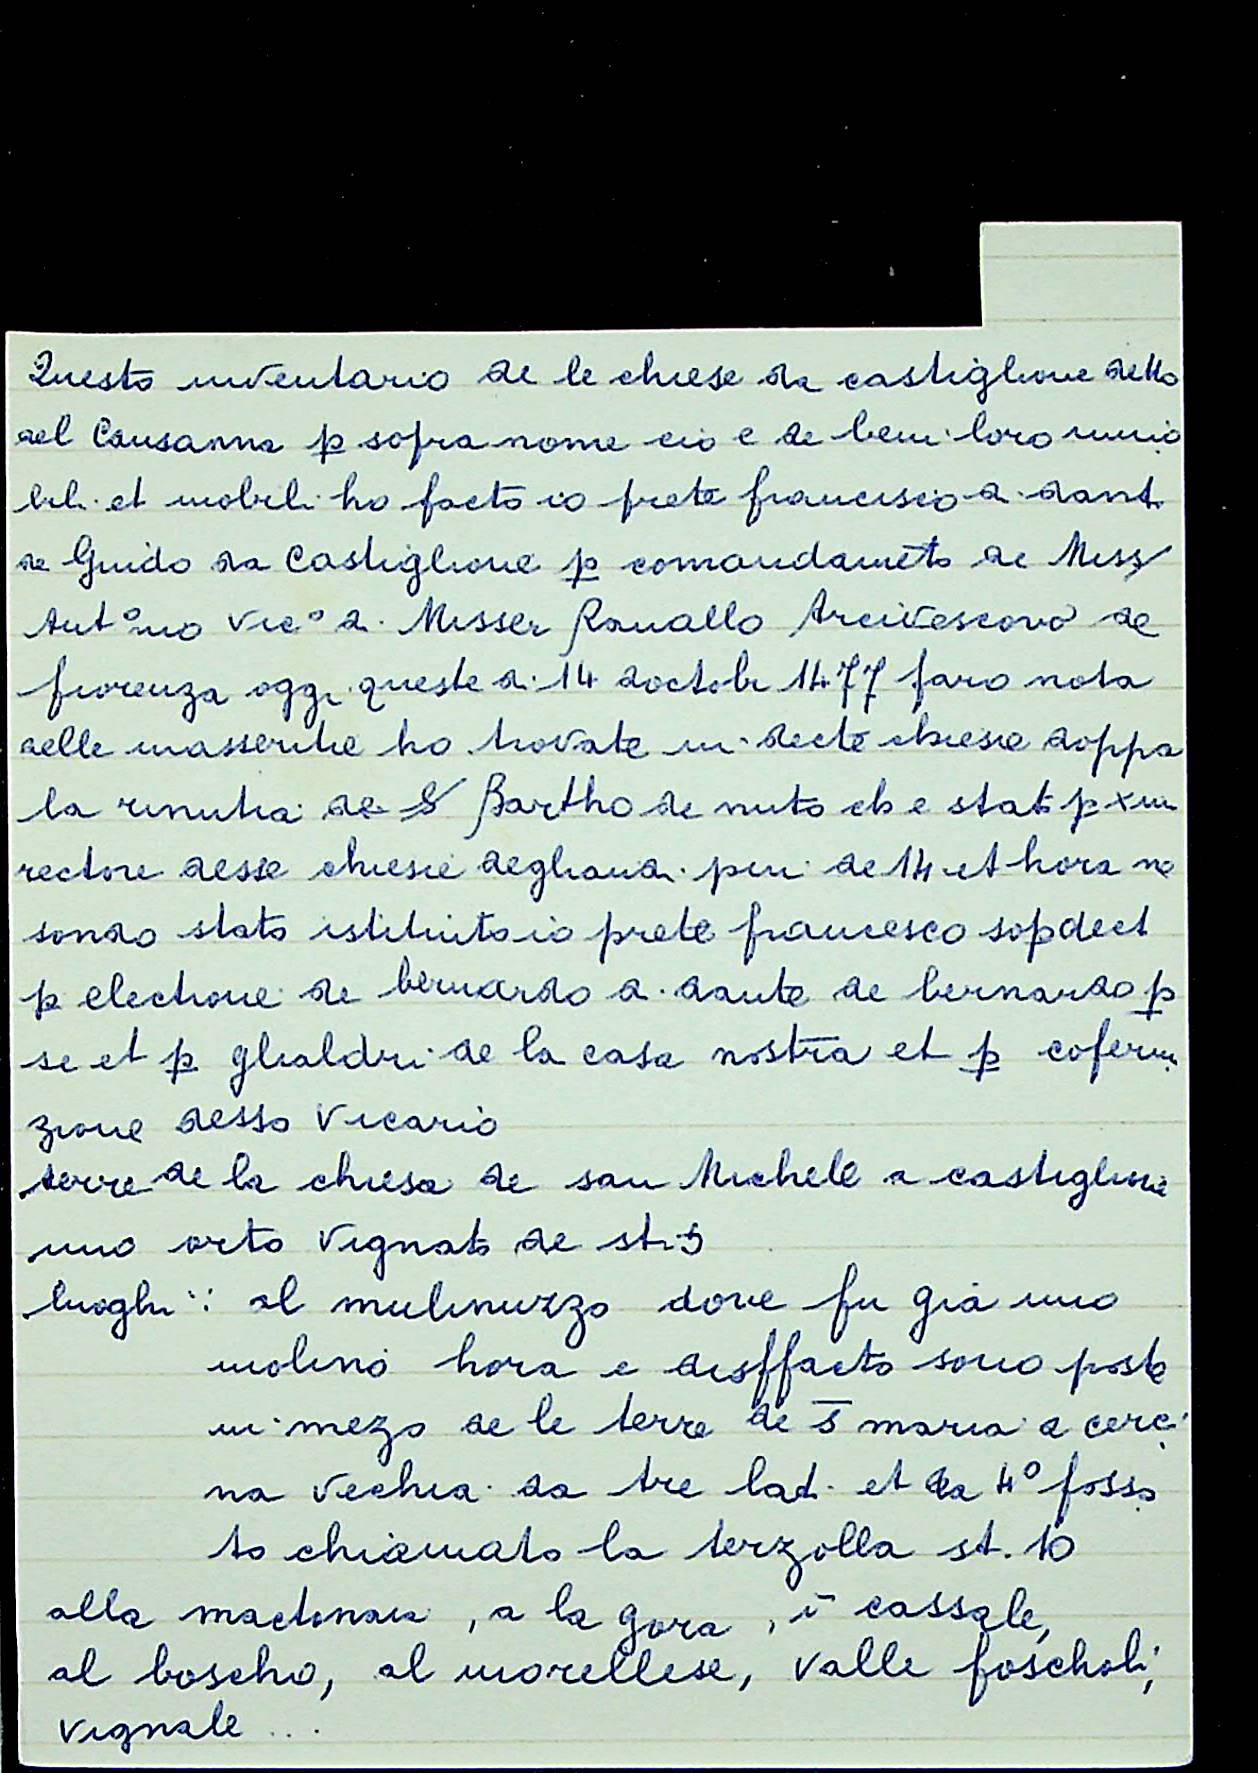 Questo inventario de le chiese da castiglione detto
del Causanna p sopra nome cio e de beni loro immo
bili et mobili ho facto io prete francescio di dant
de Guido da Castiglione p comandamēto de Miss
Ant°nio vic° di Misser Rinallo Arcivescovo de
fiorenza oggi questo di 14 doctobr 1477 faro nota
delle masseritie ho trovate in decte chiesie doppa
la renutia de S Bartho de nuto ch e stato p xiii
rectore desse chiesie degliandi piu de 14 et hora ne
sondo stato istituito io prete francesco sopdect
p electione de bernardo di dante de bernardo p
se et p glialdri de la casa nostra et p coferm
zione desso Vicario
terre de la chiesa de san Michele a castiglione
uno orto vignato de st. 5
luoghi : al mulinuzzo dove fu già uno
molino hora e disffacto sono poste
in mezo de le terre de S̄ maria a cerci
na vechia da tre lati et da 4° fossa
to chiamato la terzolla st. 10
alla mactonaia, a la gora, ī cassale,
al boscho, al morellese, valle foscholi,
vignale ...